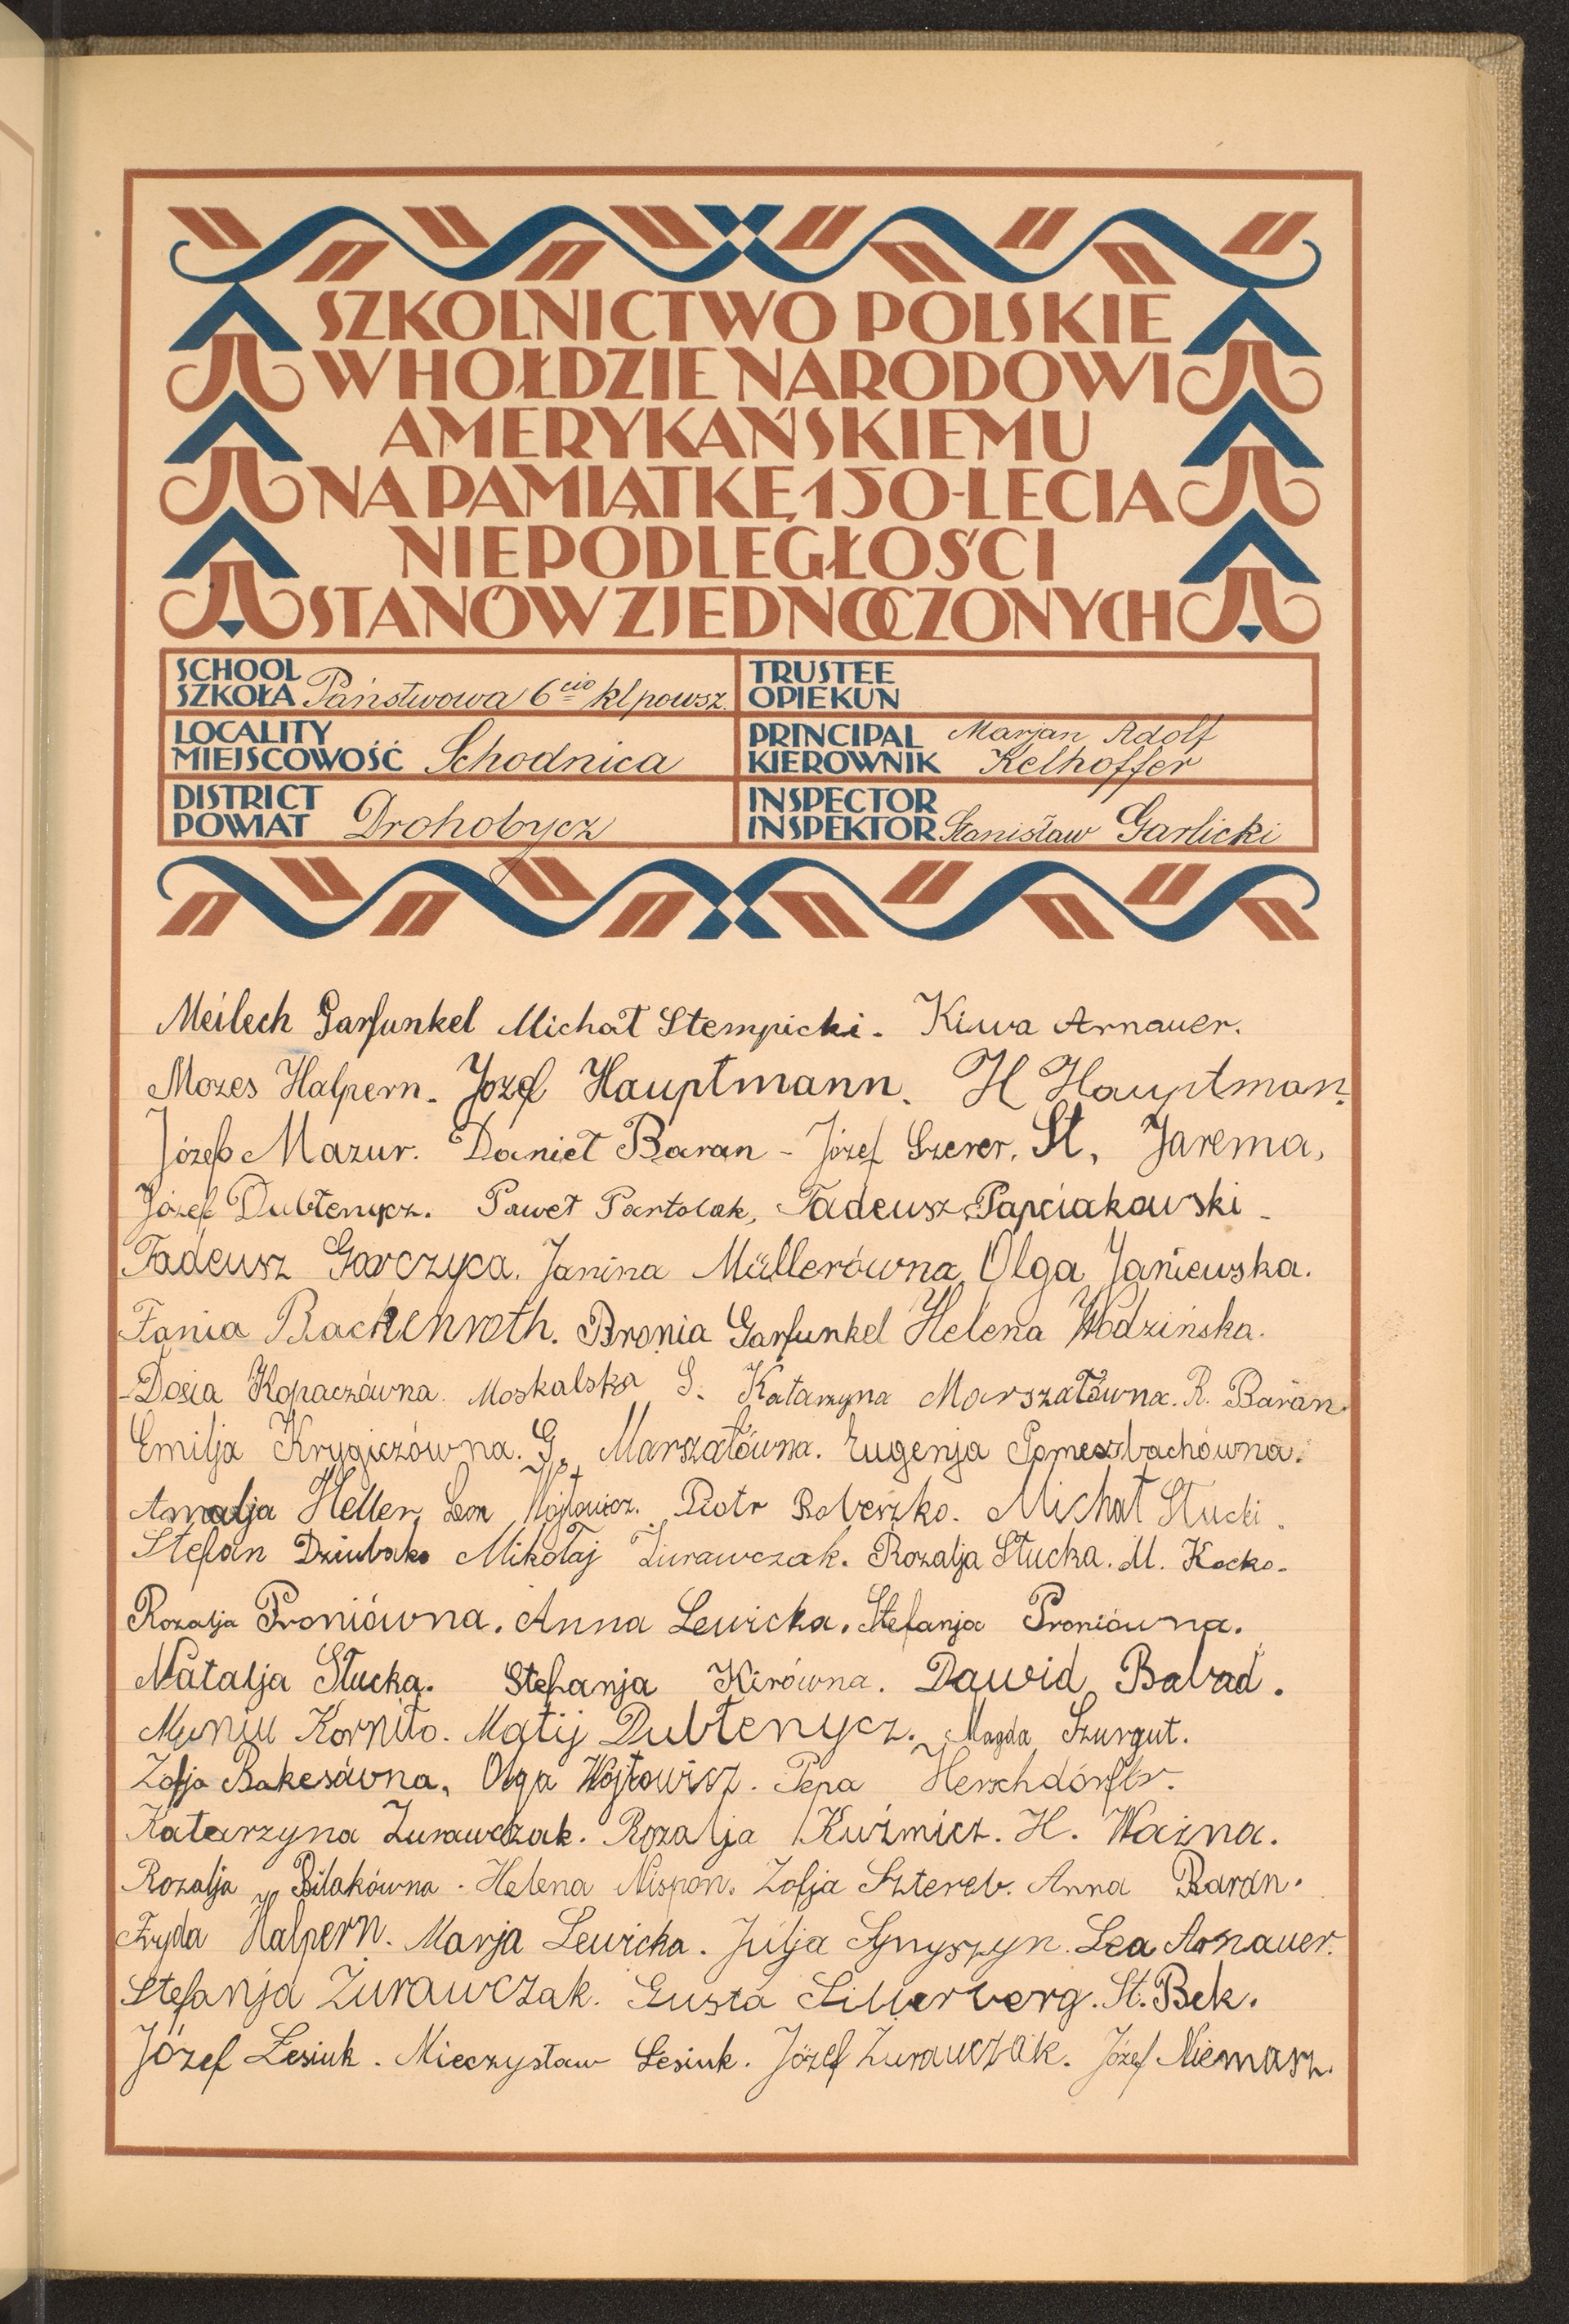 SZKOLNICTWO POLSKIE
W HOŁDZIE NARODOWI
AMERYKAŃSKIEMU
NA PAMIĄTKĘ 150-LECIA
NIEPODLEGŁOŚCI
STANÓW ZJEDNOCZONYCH
SCHOOL
SZKOŁA Państwowa 6cio kl powsz.
TRUSTEE
OPIEKUN
LOCALITY
MIEJSCOWOŚĆ Schodnica
PRINCIPAL Marjan Adolf
KIEROWNIK Kelhoffer
DISTRICT
POWIAT Drohobycz
INSPECTOR
INSPEKTOR Stanisław Garlicki
Meilech Garfunkel Michał Stempicki. Kiwa Arnauer.
Mozes Halpern. Józef Hauptmann. H Hauptman.
Józef Mazur. Daniel Baran - Józef Szerer. St. Jarema,
Józef Dubłenycz. Paweł Partolak, Tadeusz Papciakowski -
Tadeusz Garczyca. Janina Müllerówna, Olga Janiewska.
Fania Backenroth. Bronia Garfunkel Helena Wodzińska.
Dosia Kopaczówna. Moskalska S. Katarzyna Marszałówna. R. Baran.
Emilja Krygiczówna. G. Marszałówna. Eugenja
Amalja Heller, Leon Wójtowicz. Piotr Roberzko. Michał Słucki.
Stefan Dziubako Mikołaj Żurawczak. Rozalja Słucka. M. Kocko.
Rozalja Proniówna. Anna Lewicka. Stefanja Proniówna.
Natalja Słucka. Stefanja Kirówna. Dawid Babad.
Muniu Korniło. Matij Dubłenycz. Magda Szurgut.
Zofja Bakesówna, Olga Wójtowicz. Pepa Herschdörfer.
Katarzyna Żurawczak. Rozalja Kuźmicz. H. Ważna.
Rozalja Bilakówna. Helena Nispon. Zofja Sztereb. Anna Baran.
Fryda Halpern. Marja Lewicka. Julja Hnyszyn. Lea Arnauer.
Stefanja Żurawczak. Gusta Silberberg. St. Bek.
Józef Lesiuk. Mieczysław Lesiuk. Józef Żurawczak. Józef Niemasz.